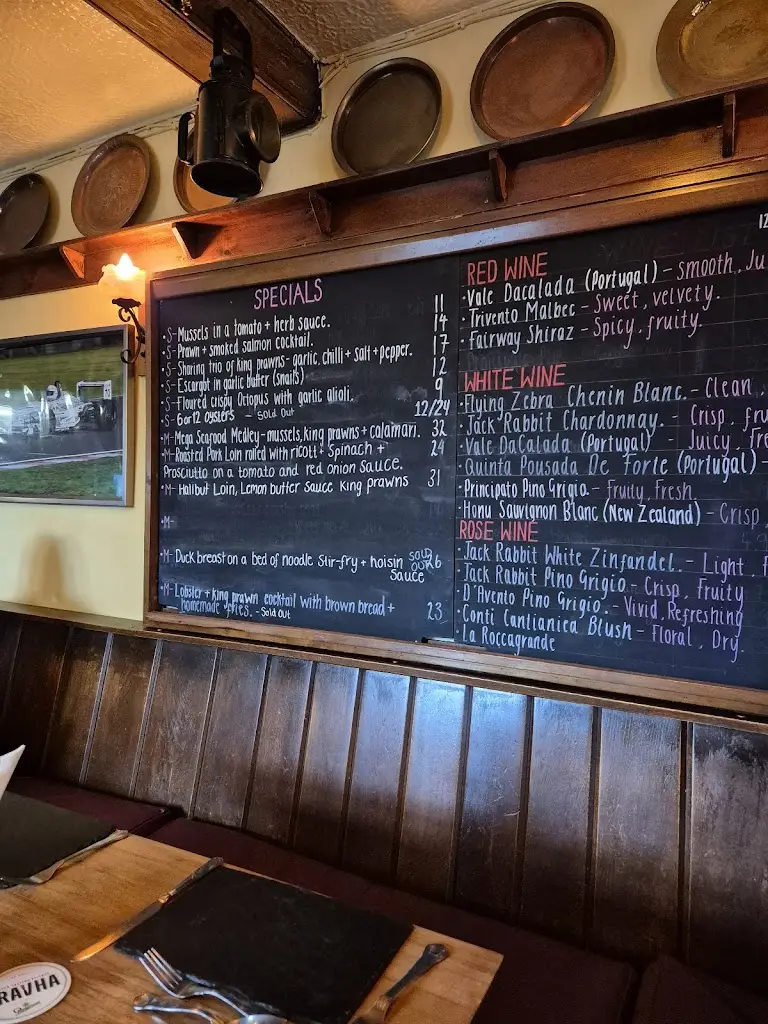 SPECIALS
·S-Mussels in a tomato + herb sauce. 11
·S-Prawn + smoked salmon cocktail. 14
·S-Sharing trio of king prawns-garlic, chilli + salt + pepper. 17
·S-Escargot in garlic butter (snails) 12
·S-Floured crispy Octopus with garlic aioli. 9
·S-6 or 12 oysters - Sold Out 12/24
·M-Mega Seafood Medley-mussels, king prawns + calamari. 32
·M-Roasted Pork Loin rolled with ricott + Spinach + 24
Prosciutto on a tomato and red onion sauce.
·M-Halibut Loin, Lemon butter Sauce King prawns 31
·M-
·M-Duck breast on a bed of noodle Stir-fry + hoisin
Sauce
SOLD
OUT
·M-Lobster + king prawn cocktail with brown bread + 23
homemade - Sold Out
12
RED WINE
·Vale Dacalada (Portugal) - Smooth, Ju
·Trivento Malbec - Sweet, velvety.
·Fairway Shiraz - Spicy, fruity.
WHITE WINE
·Flying Zebra Chenin Blanc. - Clean,
·Jack Rabbit Chardonnay. - Crisp, fru
·Vale DaCalada (Portugal) - Juicy, Fre
·Quinta Pousada De Forte (Portugal) -
·Principato Pino Grigio - Fruity, Fresh
·Honu Sauvignon Blanc (New Zealand) - Crisp
ROSE WINE
·Jack Rabbit White Zinfandel. - Light, f
·Jack Rabbit Pino Grigio - Crisp, Fruity
·D'Avento Pino Grigio. - Vivid, Refreshing
·Conti Cantianica Blush - Floral, Dry.
La Roccagrande
RAVHA